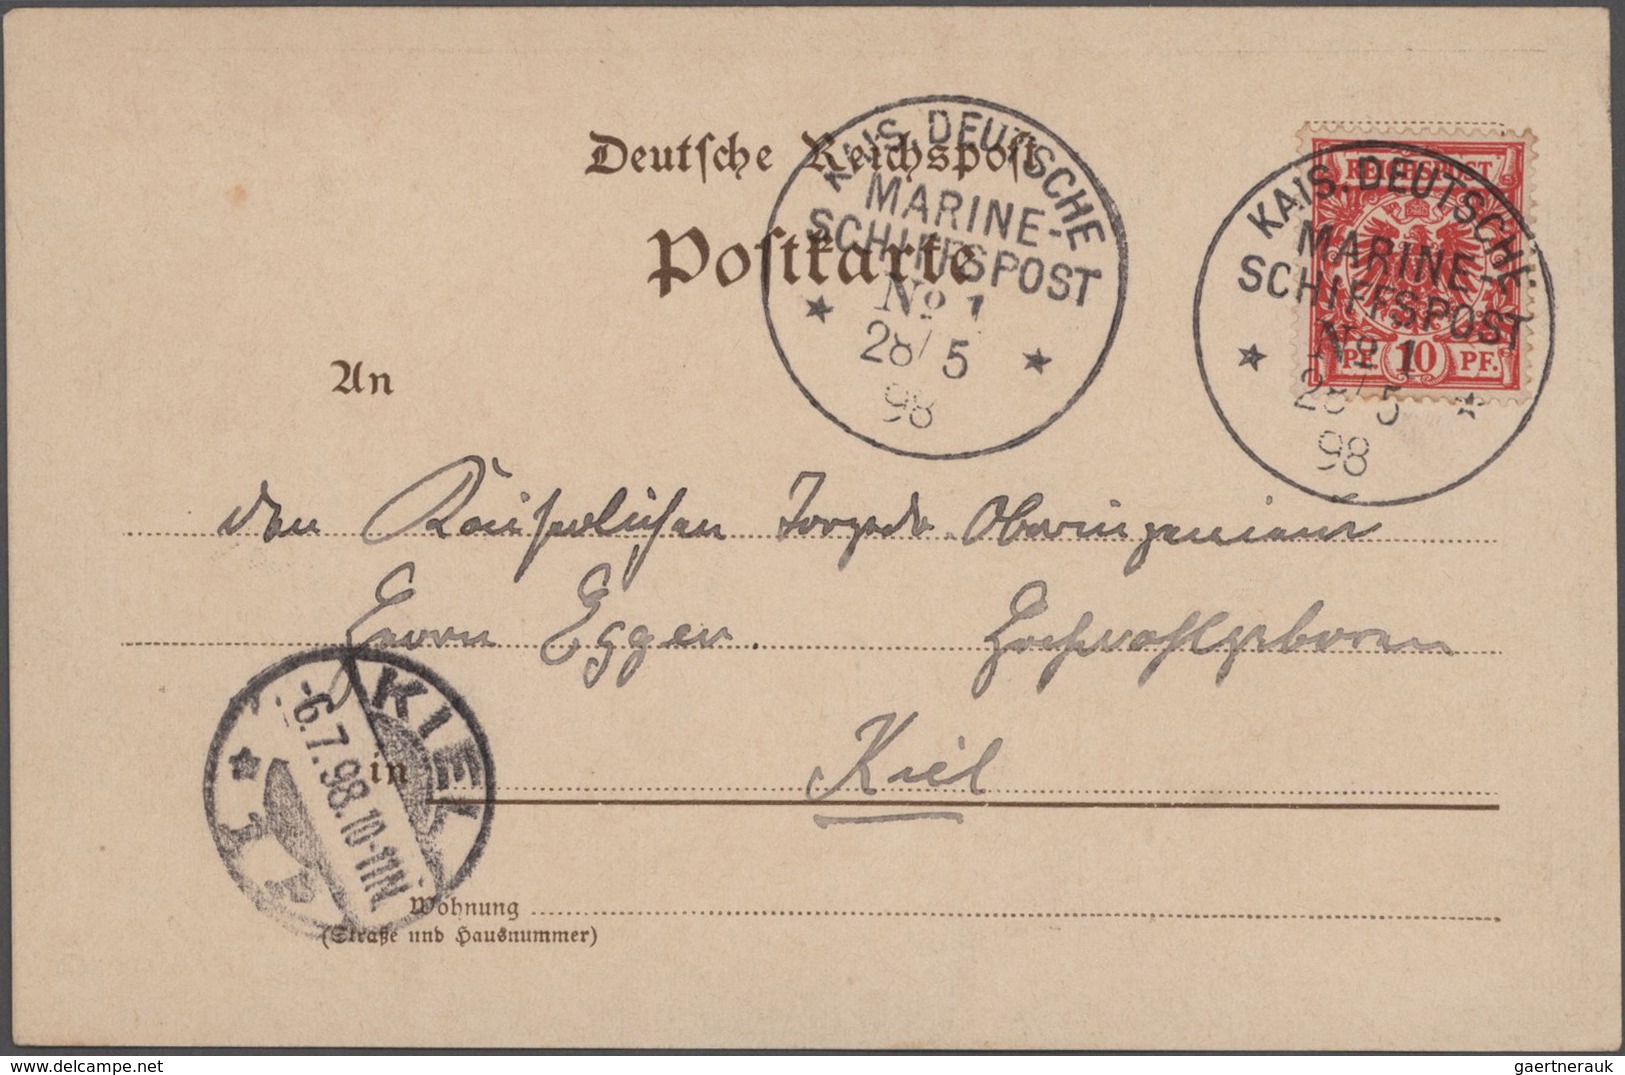 Deutsche Reichspost
Postkarte
KAIS. DEUTSCHE
MARINE-
SCHIFFSPOST
No 1
28/5
98
REICHSPOST
PF 10 PF.
KAIS. DEUTSCHE
MARINE-
SCHIFFSPOST
No 1
28/5
98
An
den Kaiserlichen Torpedo Oberingenieur
Herrn Egger. Hochwohlgeboren
in Kiel
KIEL
6.7.98.10-11N.
1
Wohnung
(Straße und Hausnummer)
gaertnerauk
delcampe.net